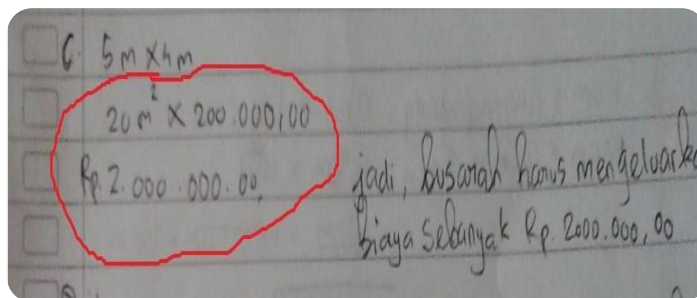 C. 5 m x 4 m
20 m² x 200.000,00
Rp. 2.000.000.00,
jadi, busarah harus mengeluarka
biaya sebanyak Rp. 2000.000,00